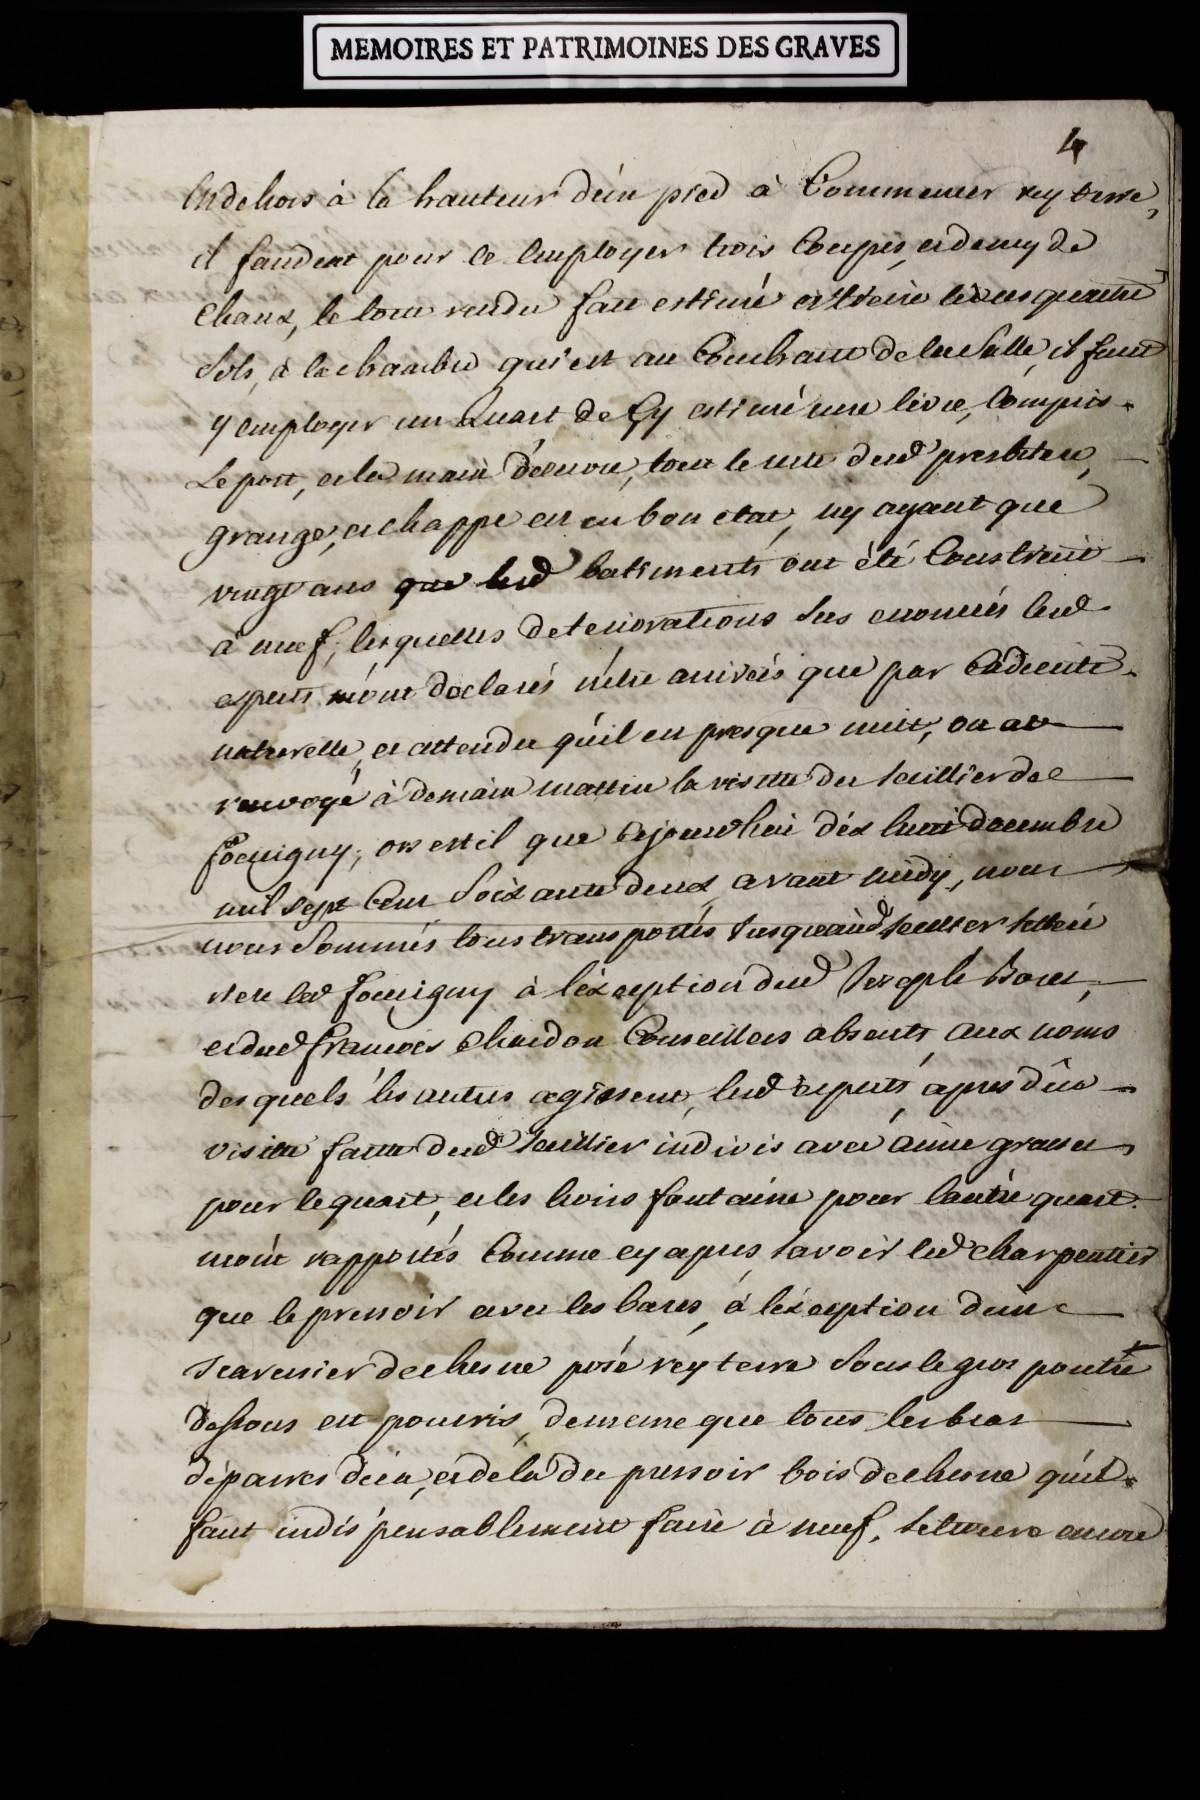 MEMOIRES ET PATRIMOINES DES GRAVES
4
en dehors à la hauteur d'un pied à Commencer rey terre,
il faudrat pour ce employer trois Coupes, et demy de
Chaux, le tout rendu fait estimé livres quattre
sols, à la chambre qui est au Couchant de la Salle, il faut
y employer un Quart de estimé une livre, Compris
Le port, et la main d'œuvre, tout le reste dud presbitere,
grange, et chappe est en bon etat, ny ayant que
vingt ans que lesd batiments ont été Construit
à neuf, lesquelles deteriorations sus enoncées lesd
experts m'ont declarés n'etre arrivées que par Caducité
naturelle, et attendu qu'il est presque nuit, on at
renvoyé à demain mattin la visitte du seillier de
Foeuigny; or est il que cejourdhui dix huit decembre
mil sept Cent Soixante deux avant midy, nous
nous Sommes tous transportés jusqueaud seillier situé
rere led Foeuigny à l'éxception dud Joseph
et dud François Chardon Conseillers absents, aux noms
des quels les autres agissent, lesd experts, apres dûe
visitte faitte dud seillier indivis avec aimé
pour le quart, et les hoirs fontaine pour l'autre quart
m'ont rapportés Comme cy apres, savoir led charpentier
que le pressoir avec les bares, à l'éxception d'un
de chesne posé rey terre sous le gros
dessous est pourris, de meme que tous les bras
de parres deça, et dela du pressoir bois de chesne qu'il
faut indispensablement faire à neuf, se trouve encore